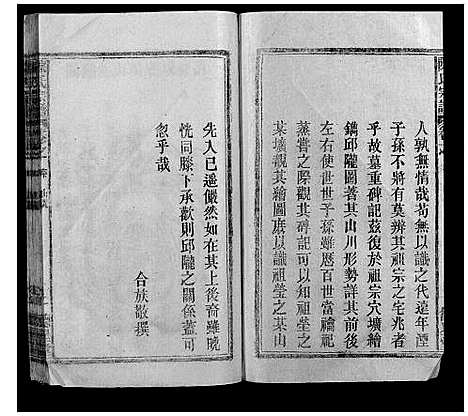 人孰無情哉苟無以識之代遠年湮
子孫不將有莫辨其祖宗之宅兆者
乎故墓重碑記茲復於祖宗穴壙繪
鐫邱隴圖著其山川形勢詳其前後
左右使世世子孫雖歷百世當禴祀
蒸嘗之際觀其碑記可以知祖塋之
某壙觀其繪圖庶以識祖塋之某山
先人已遥儼然如在其上後裔雖晚
恍同膝下承歡則邱隴之關係蓋可
忽乎哉
合族敬撰